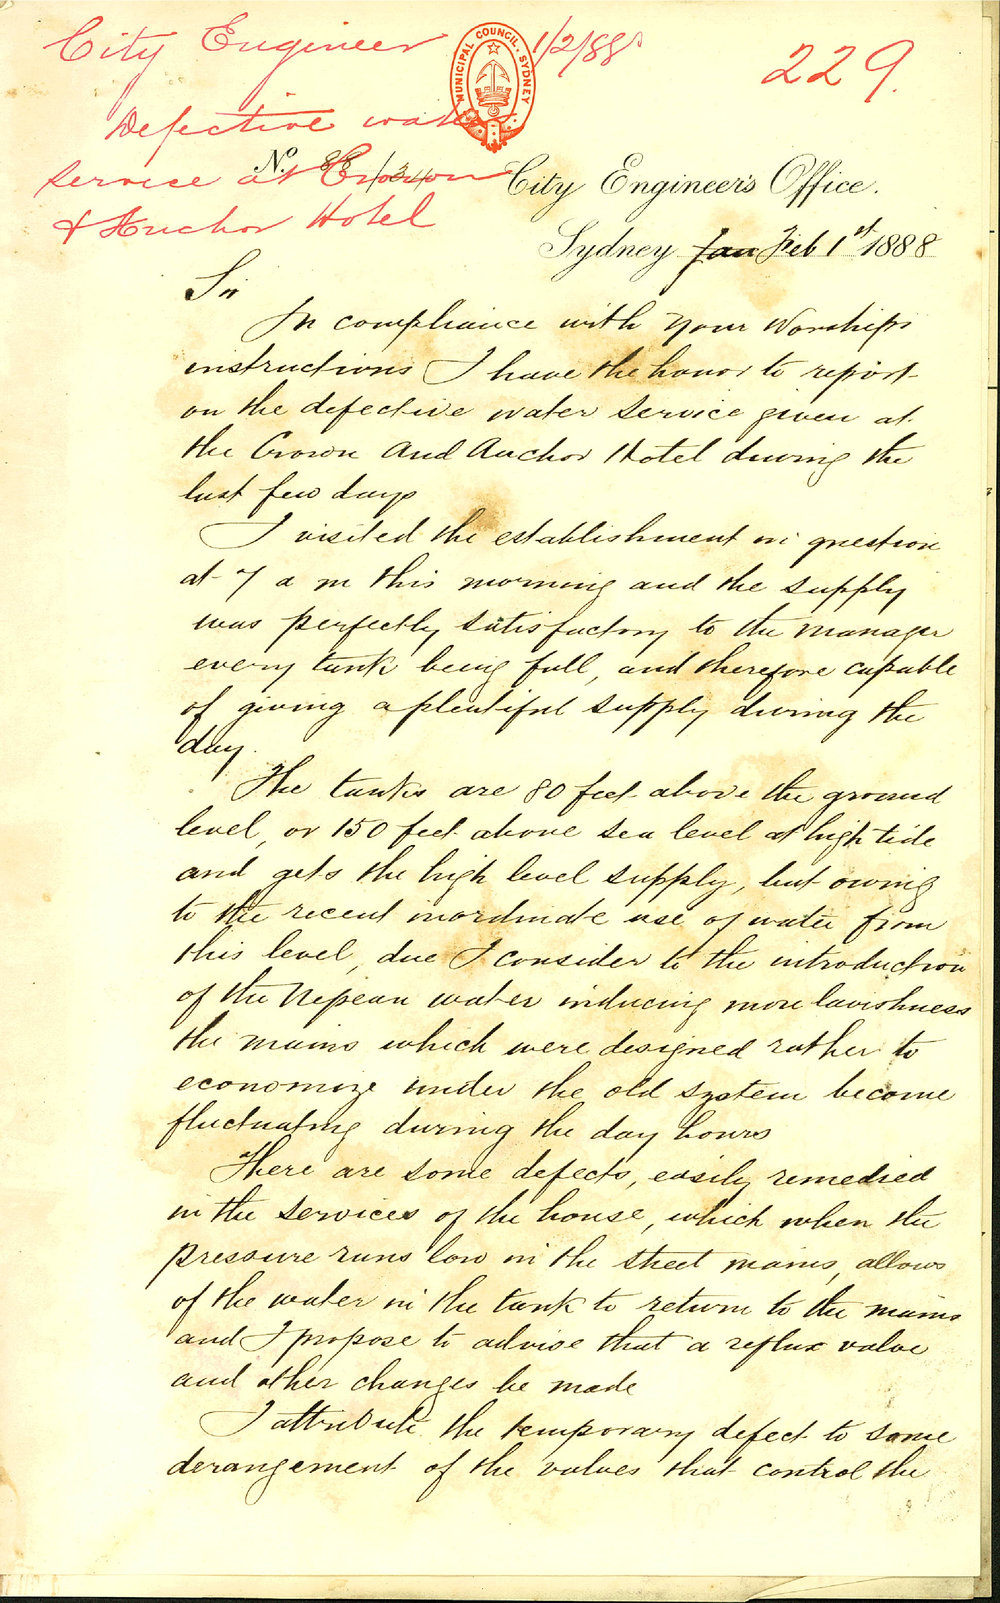 City Engineer 1/2/88
229.
Defective water
service at Crown
& Anchor Hotel
MUNICIPAL COUNCIL. SYDNEY
No. 88/134
City Engineer's Office.
Sydney Jan Feb 1st 1888
Sir
In compliance with your Worships
instructions I have the honor to report
on the defective water service given at
the Crown And Anchor Hotel during the
last few days
I visited the establishment in question
at 7 a m this morning and the supply
was perfectly satisfactory to the manager
every tank being full, and therefore capable
of giving a plentiful supply during the
day.
The tanks are 80 feet above the ground
level, or 150 feet above sea level at high tide
and gets the high level supply, but owing
to the recent inordinate use of water from
this level, due I consider to the introduction
of the Nepean water inducing more lavishness
the mains which were designed rather to
economize under the old system become
fluctuating during the day hours
There are some defects, easily remedied
in the services of the house, which when the
pressure runs low in the street mains, allows
of the water in the tank to return to the mains
and I propose to advise that a reflux valve
and other changes be made
I attribute the temporary defect to some
derangement of the valves that control the